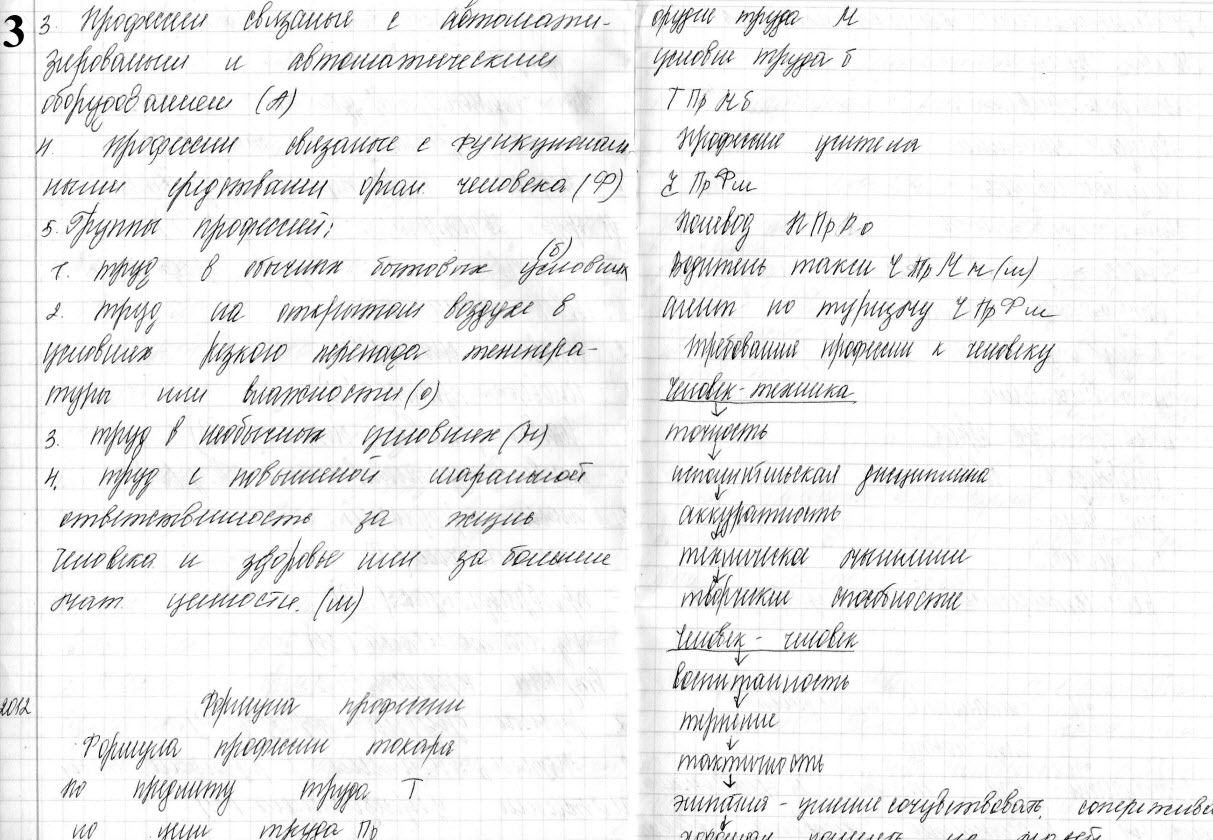 3
3. Профессии связаные с автомати-
зированыи и автоматическим
оборудованием (А)
4. профессии связаные с функциональ
ными средствами орган человека (Ф)
5. Группы профессий:
1. труд в обычных бытовых условиях (б)
2. труд на открытом воздухе в
условиях резкого перепада темпера-
туры или влажности (о)
3. труд в необычных условиях (Н)
4. труд с повышеной маральной
ответственность за жизнь
человека и здоровье или за большие
мат. ценности. (м)
2012
Формула професии
Формула професии токаря
по предмиту труда Т
по цели труда Пр
орудие труда М
условие труда б
Т Пр М б
Професие учителя
Ч Пр Ф м
Полевод П Пр Р о
Водитель такси Ч Пр М н (м)
агент по туризму Ч Пр Ф м
Требования професии к человеку
Человек - техника
точность
исполнительская дисциплина
аккуратность
техническа мышлении
творческие способностие
Человек - человек
воспитанность
терпение
тактичность
эмпатия - умение сочувствовать, сопережива
хорошая память на